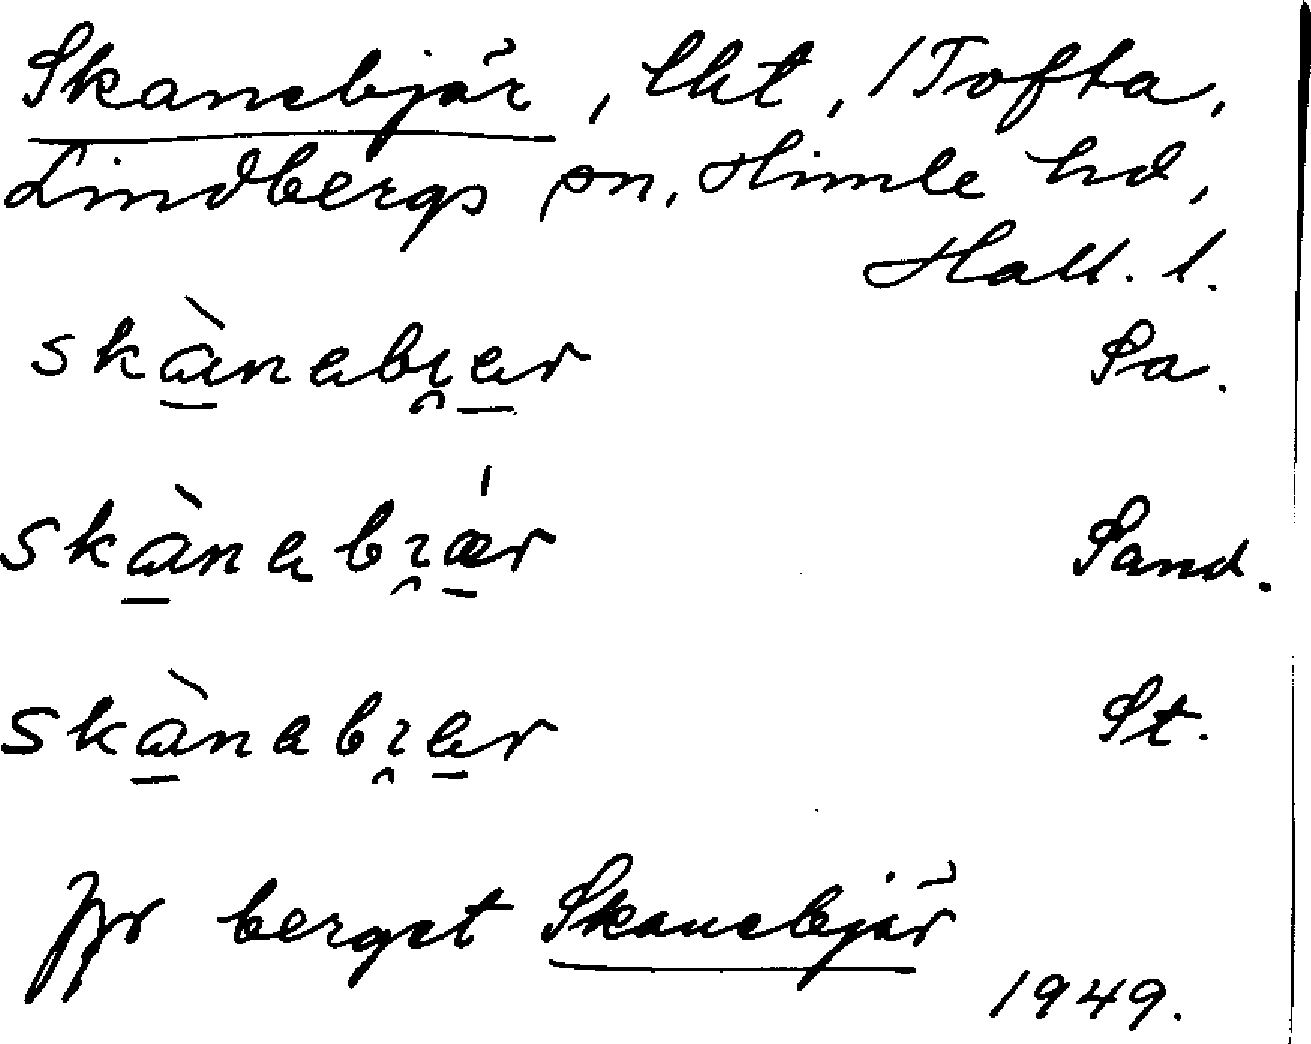 Skanebjär, lht, 1 Tofta,
Lindbergs sn, Himle hd,
Hall. l.
skànabi̯ær Sa.
skànabi̯ǽr Sand.
skànabi̯ær St.
Jfr berget Skanebjär
1949.